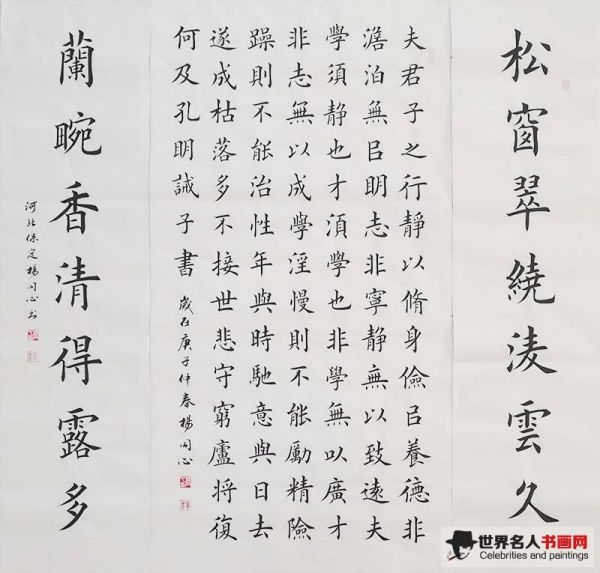 松窗翠繞淩雲久
夫君子之行靜以脩身儉㠯養德非
澹泊無㠯明志非寧靜無以致遠夫
學須靜也才須學也非學無以廣才
非志無以成學淫慢則不能勵精險
躁則不能治性年與時馳意與日去
遂成枯落多不接世悲守窮廬將復
何及孔明誡子書 歲在庚子仲春楊同心
蘭畹香清得露多
河北保定楊同心书
世界名人书画网
Celebrities and paintings